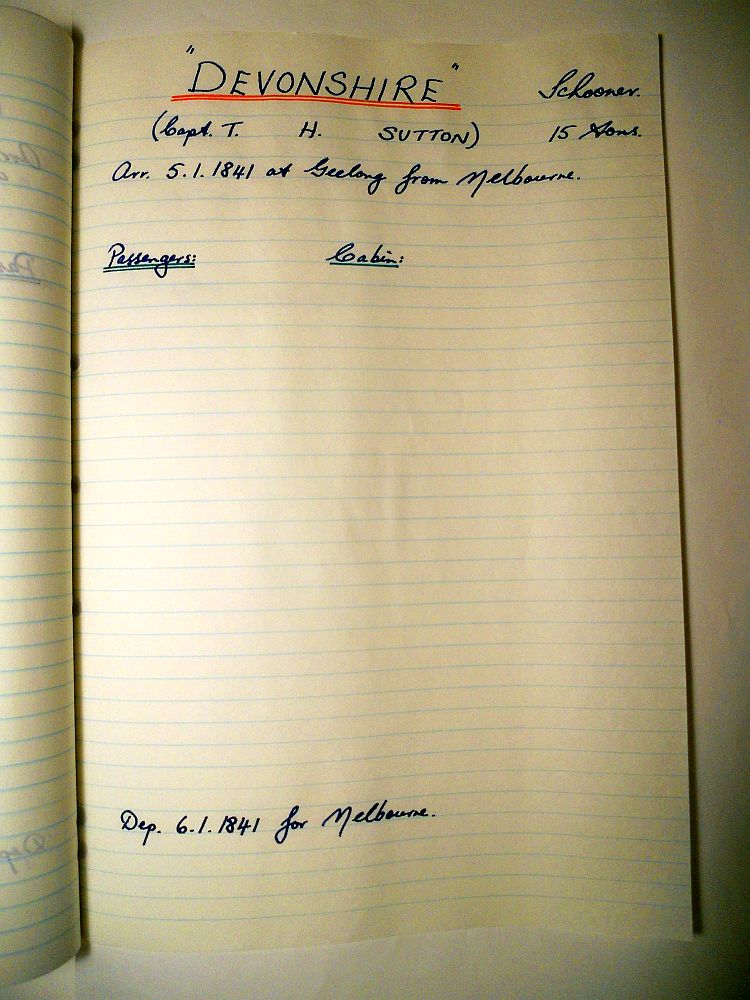 "DEVONSHIRE" Schooner.
(Capt. T. H. SUTTON) 15 Tons.
Arr. 5.1.1841 at Geelong from Melbourne.
Passengers: Cabin:
Dep. 6.1.1841 for Melbourne.